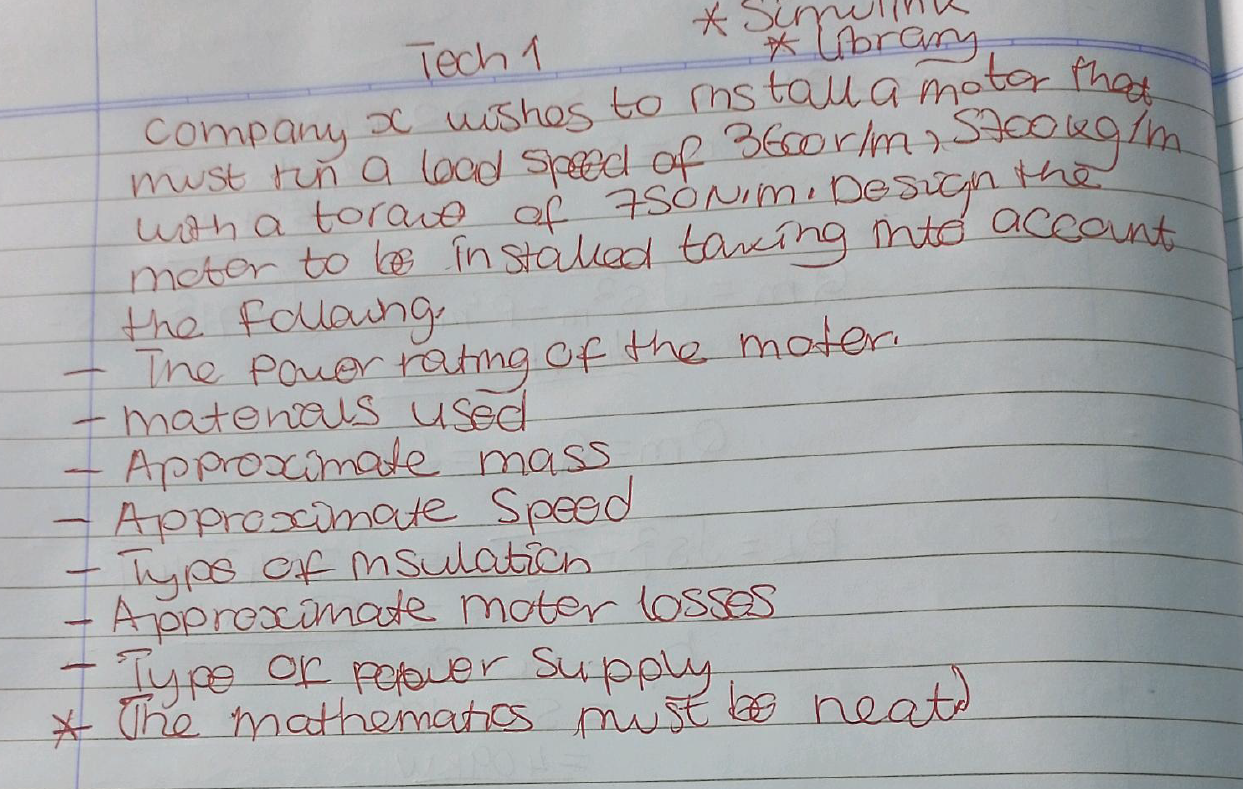 * Simulink
Tech 1 * Library
company x wishes to install a motor that
must run a load speed of 3600r/m, 5700kg/m
with a torque of 750N.m. Design the
motor to be installed taking into account
the following.
- The power rating of the motor.
- materials used
- Approximate mass
- Approximate Speed
- Type of insulation
- Approximate motor losses
- Type of power supply
* (The mathematics must be neat)